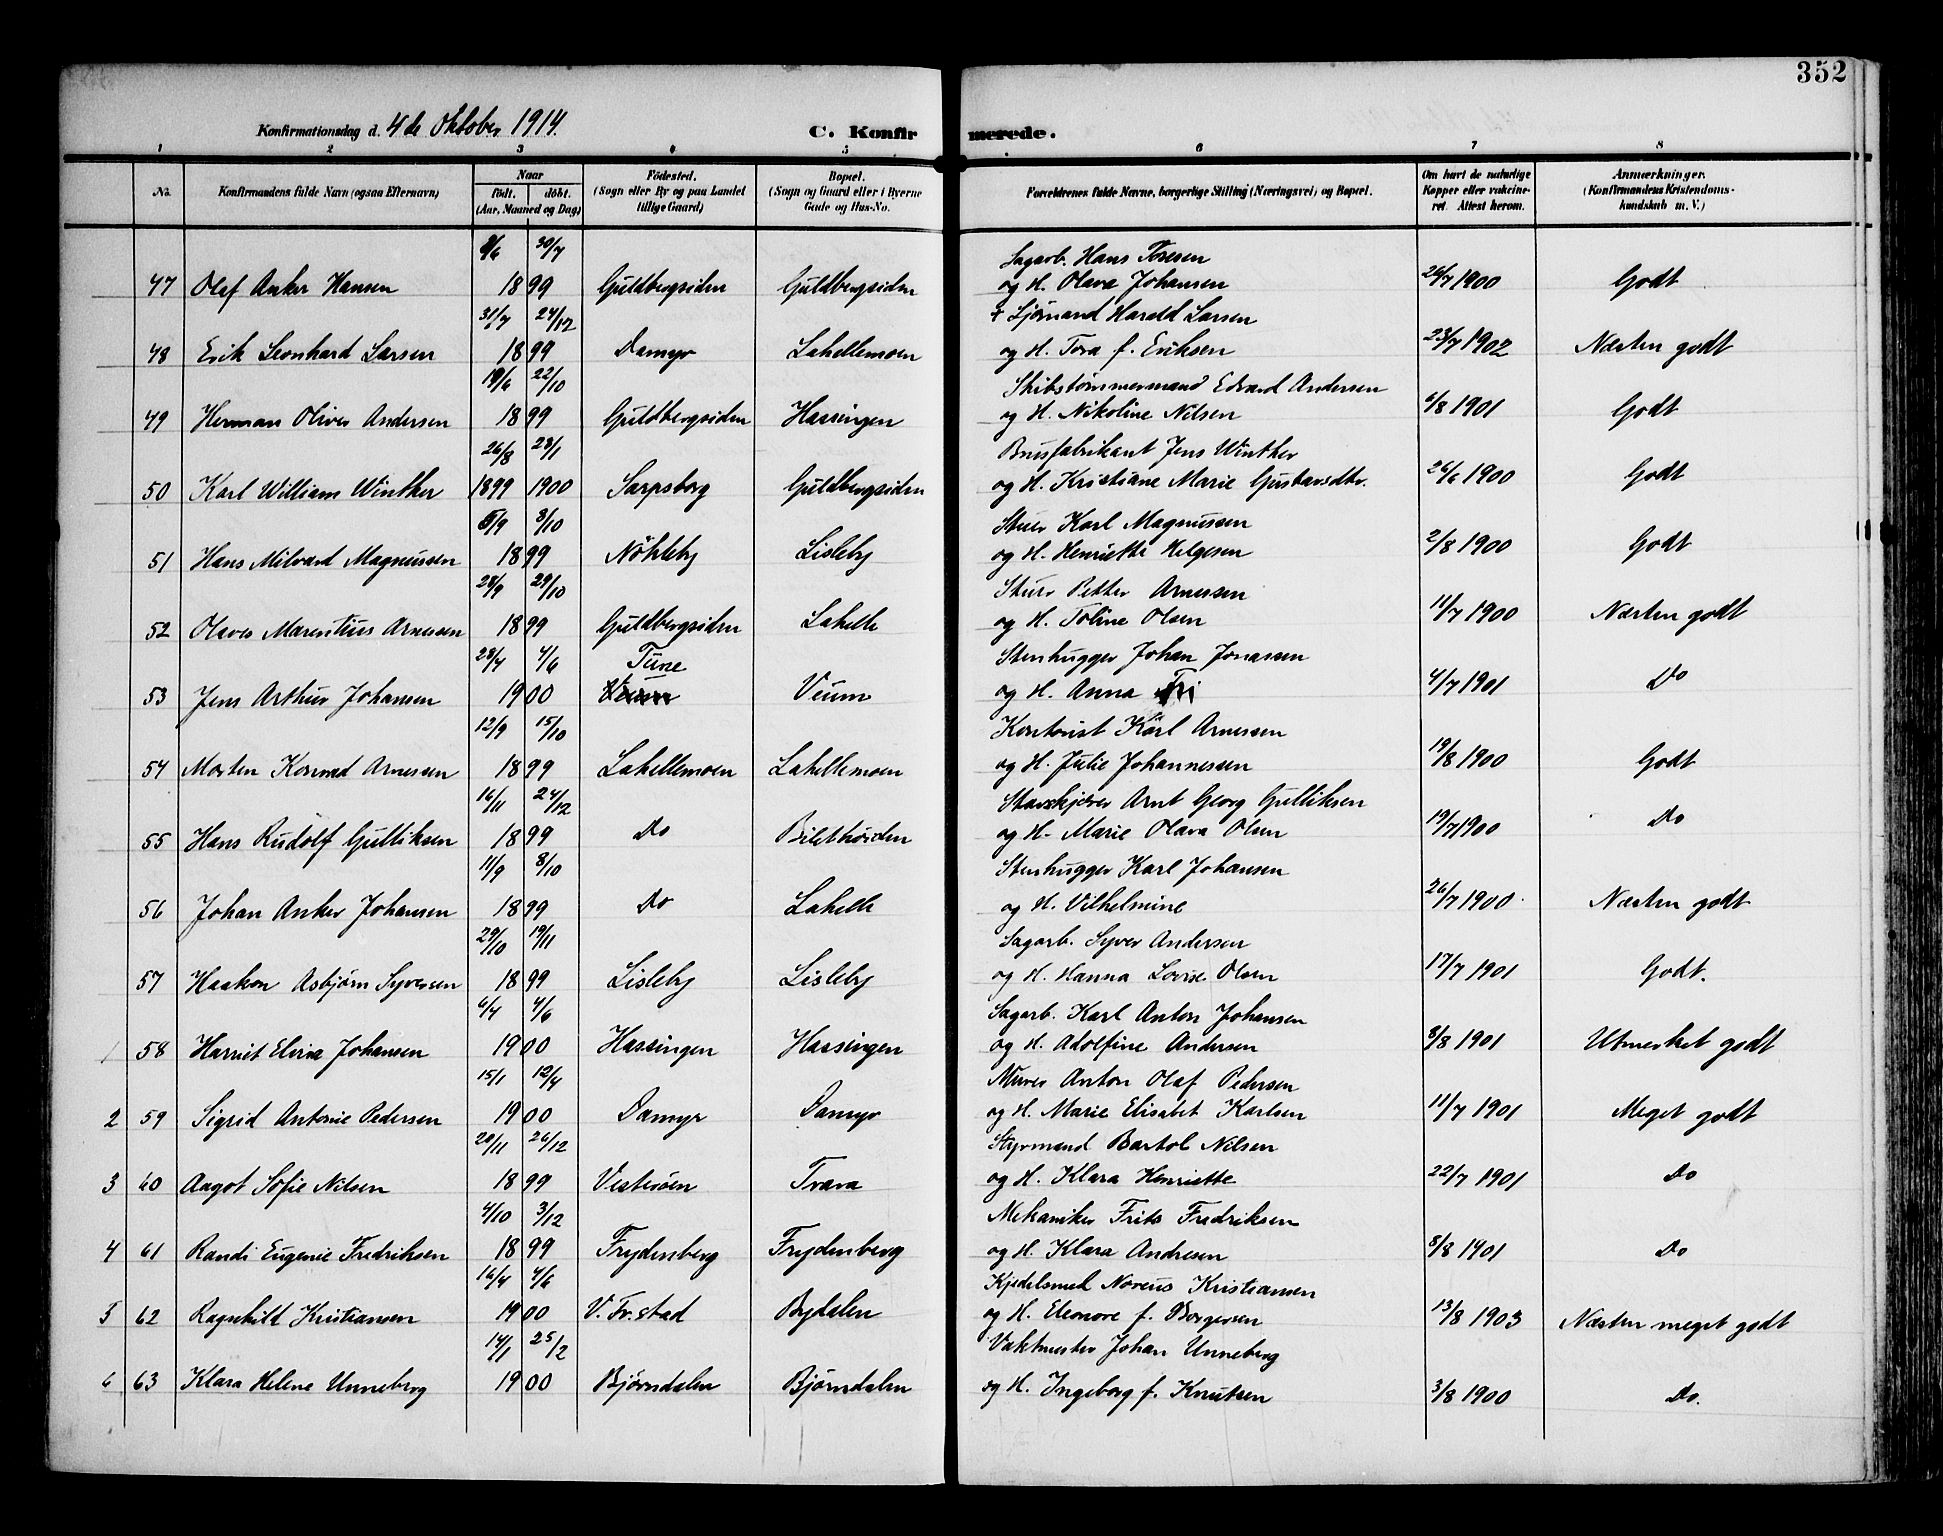 352
Konfirmationsdag d. 4de Oktober 1914.
C. Konfirmerede.
1 2 3 4 5 6 7 8
No. Konfirmandens fulde Navn (ogsaa Efternavn) Naar født. døbt. (Aar, Maaned og Dag) Fødested. (Sogn eller By og paa Landet tillige Gaard) Bopæl. (Sogn og Gaard eller i Byerne Gade og Hus-No. Forældrenes fulde Navne, borgerlige Stilling (Næringsvei) og Bopæl. Om havt de naturlige Kopper eller vakcineret. Attest herom. Anmærkninger. (Konfirmandens Kristendomskundskab m. V.)
8/6 30/7 Sagarb. Hans Toresen
47 Olaf Anker Hansen 1899 Guldbergsiden Guldbergsiden og H. Olava Johansen 26/7 1900 Godt
31/7 24/12 Sjømand Harald Larsen
48 Erik Leonhard Larsen 1899 Damyr Lahellemoen og H. Tora f. Eriksen 23/7 1902 Næsten godt
19/6 22/10 Skibstømmermand Edvard Andersen
49 Herman Oliver Andersen 1899 Guldbergsiden Hassingen og H. Nikoline Nilsen 6/8 1901 Godt
26/8 28/1 Brusfabrikant Jens Winther
50 Karl William Winther 1899 1900 Sarpsborg Guldbergsiden og H. Kristiane Marie Gustavsdtr. 26/6 1900 Godt
5/9 8/10 Stuer Karl Magnussen
51 Hans Milvard Magnussen 1899 Nøkleby Lisleby og H. Henriette Helgesen 2/8 1900 Godt
28/9 29/10 Stuer Petter Arnesen
52 Olaves Marentius Arnesen 1899 Guldbergsiden Lahelle og H. Toline Olsen 11/7 1900 Næsten godt
28/4 4/6 Tune Stenhugger Johan Jonassen
53 Jens Arthur Johansen 1900 Veum Veum og H. Anna 4/7 1901 Do
12/9 15/10 Kontorist Karl Arnesen
54 Morten Konrad Arnesen 1899 Lahellemoen Lahellemoen og H. Julie Johannessen 19/8 1900 Godt
16/11 24/12 Stavskjærer Arnt Georg Gulliksen
55 Hans Rudolf Gulliksen 1899 Do og H. Marie Olava Olsen 19/7 1900 Do
11/9 8/10 Stenhugger Karl Johansen
56 Johan Anker Johansen 1899 Do Lahelle og H. Vilhelmine 26/7 1900 Næsten godt
29/10 19/11 Sagarb. Syver Andersen
57 Haakon Asbjørn Syversen 1899 Lisleby Lisleby og H. Hanna Lovise Olsen 17/7 1901 Godt.
6/4 4/6 Sagarb. Karl Anton Johansen
1 58 Harriet Elvira Johansen 1900 Hassingen Hassingen og H. Adolfine Andersen 8/8 1901 Utmerket godt
15/1 12/4 Murer Anton Olaf Pedersen
2 59 Sigrid Antonie Pedersen 1900 Damyr Damyr og H. Marie Elisabet Karlsen 11/7 1901 Meget godt
28/11 26/12 Styrmand Bartol Nilsen
3 60 Aagot Sofie Nilsen 1899 Vesterøen Trara og H. Klara Henriette 22/7 1901 Do
4/10 3/12 Mekaniker Frits Fredriksen
4 61 Randi Eugenie Fredriksen 1899 Frydenberg Frydenberg og H. Klara Andresen 8/8 1901 Do
16/4 4/6 Kjedelsmed Noreus Kristiansen
5 62 Ragnhild Kristiansen 1900 V. Fr.stad Bydalen og H. Eleonore f. Borgersen 13/8 1903 Næsten meget godt
14/1 25/2 Vaktmester Johan Unneberg
6 63 Klara Helene Unneberg 1900 Bjørndalen Bjørndalen og H. Ingeborg f. Knutsen 3/8 1900 Do.